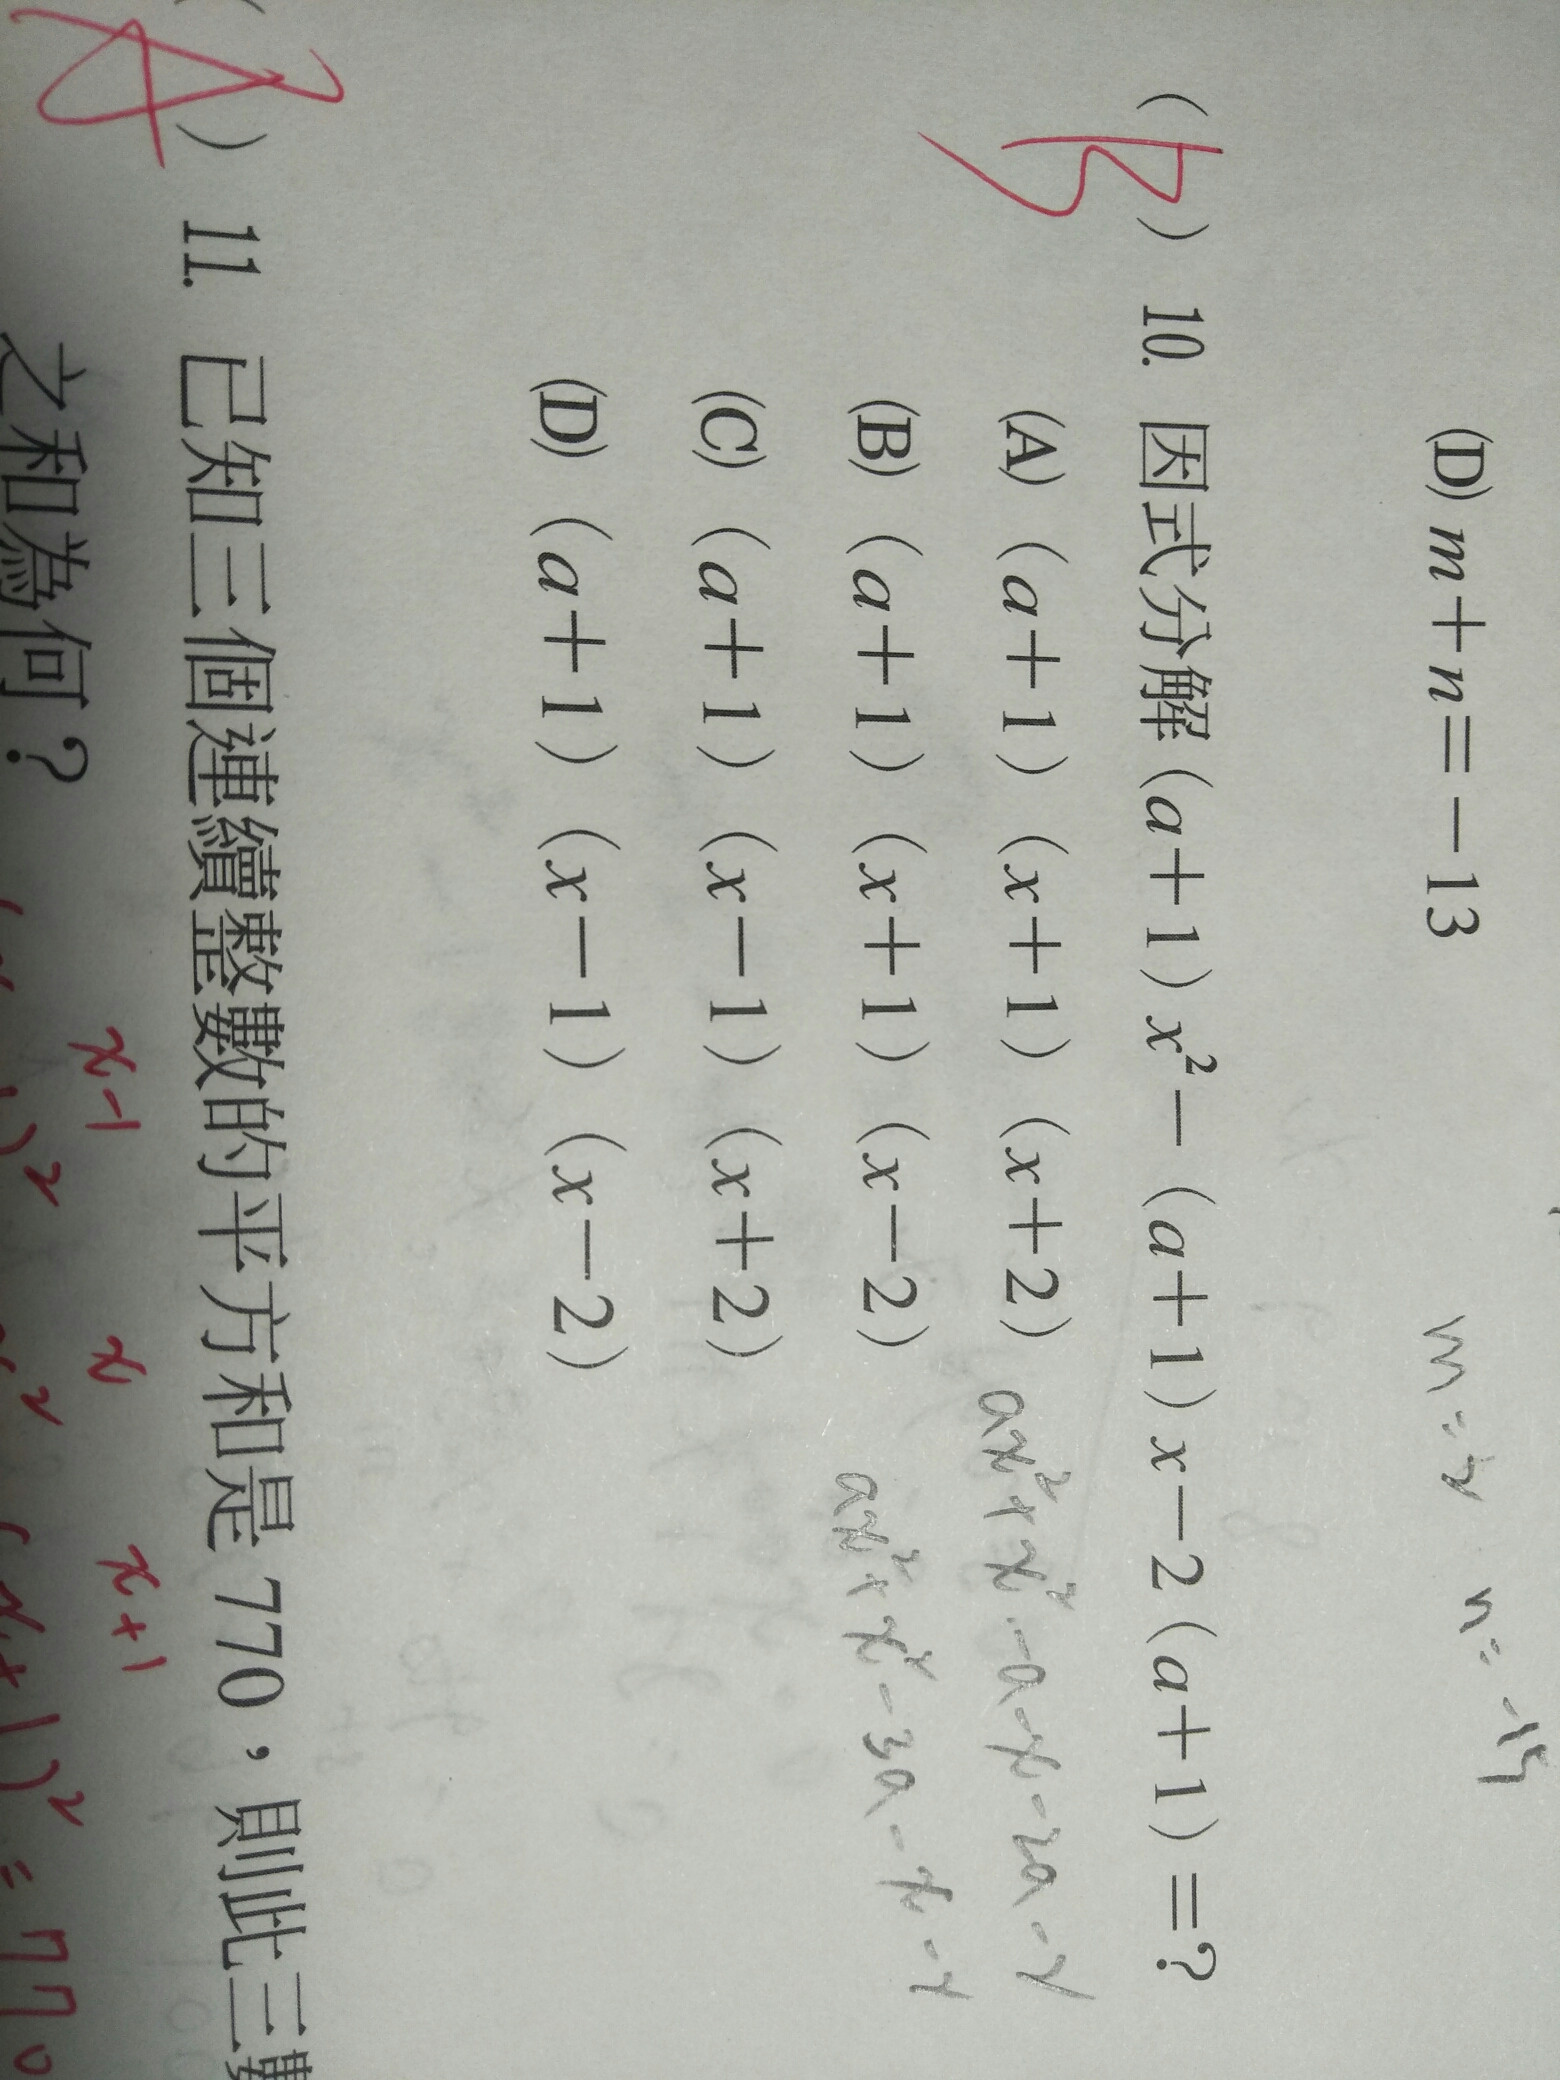 (D) m+n=-13
m=2 n=-15
(B) 10. 因式分解(a+1)x²-(a+1)x-2(a+1)=?
(A)(a+1)(x+1)(x+2) ax²+x²-a-x-2a-2
(B)(a+1)(x+1)(x-2) ax²+x²-3a-x-2
(C)(a+1)(x-1)(x+2)
(D)(a+1)(x-1)(x-2)
(A) 11. 已知三個連續整數的平方和是770,則此三數
x-1 x x+1
之和為何?
(x+1)²=770